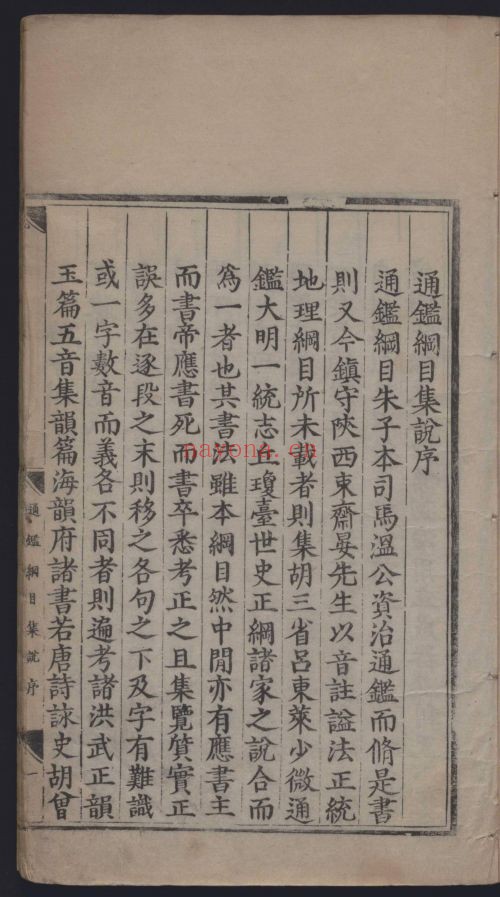 通鑑綱目集說序
通鑑綱目朱子本司馬溫公資治通鑑而脩是書
則又今鎮守陝西東齋晏先生以音註謚法正統
地理綱目所未載者則集胡三省呂東萊少微通
鑑大明一統志丘瓊臺世史正綱諸家之說合而
爲一者也其書法雖本綱目然中閒亦有應書主
而書帝應書死而書卒悉考正之且集覽質實正
誤多在逐段之末則移之各句之下及字有難識
或一字數音而義各不同者則遍考諸洪武正韻
玉篇五音集韻篇海韻府諸書若唐詩詠史胡曾
通鑑綱目集說序
一